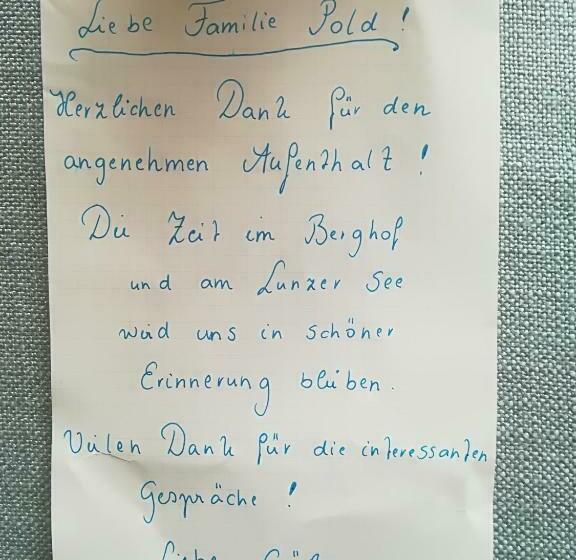 Liebe Familie Pold!
Herzlichen Dank für den
angenehmen Aufenthalt!
Die Zeit im Berghof
und am Lunzer See
wird uns in schöner
Erinnerung bleiben.
Vielen Dank für die interessanten
Gespräche!
Liebe